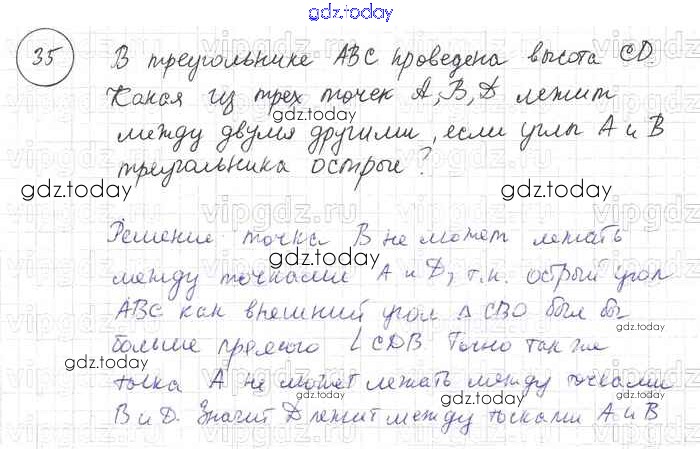 gdz.today
35 В треугольнике ABC проведена высота CD.
Какая из трех точек A, B, D лежит
gdz.today
между двумя другими, если углы A и B
треугольника острые?
gdz.today
gdz.today
Решение точка B не может лежать
между точками A и D, т.к. острый угол
gdz.today
ABC как внешний угол ∆ CBD был бы
gdz.today
больше прямого ∠ CDB Точно так же
gdz.today
точка A не может лежать между точками
B и D. Значит D лежит между точками A и B
gdz.today